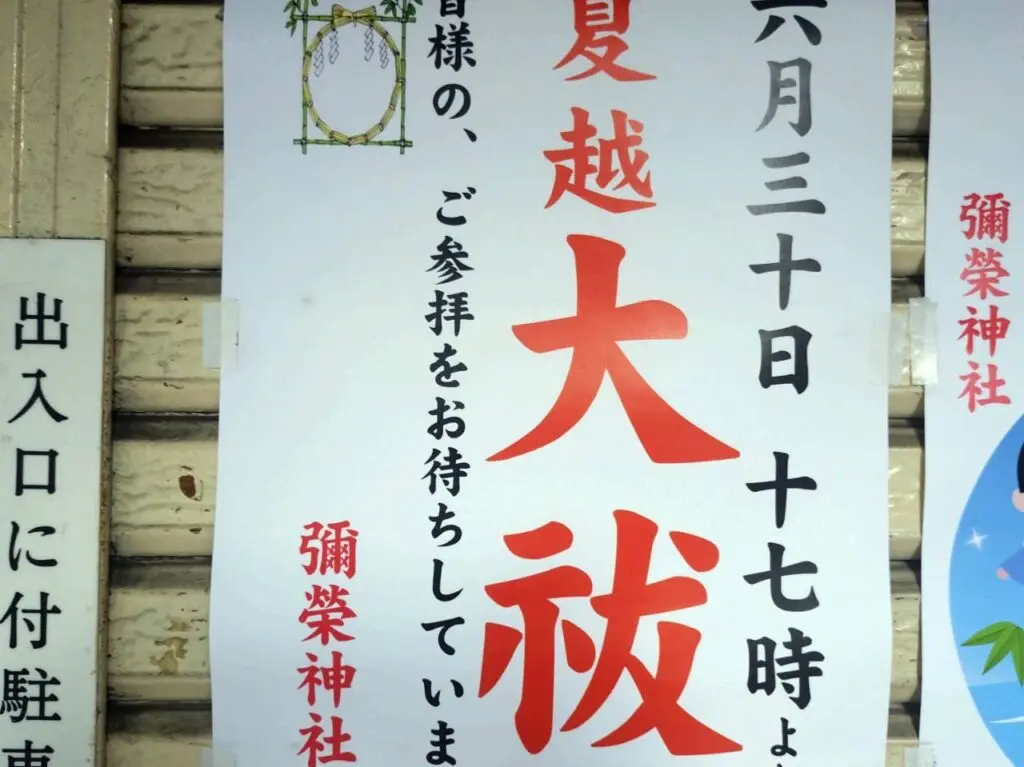 六月三十日 十七時よ
夏越
大祓
皆様の、ご参拝をお待ちしていま
彌榮神社
彌榮神社
出入口に付駐車